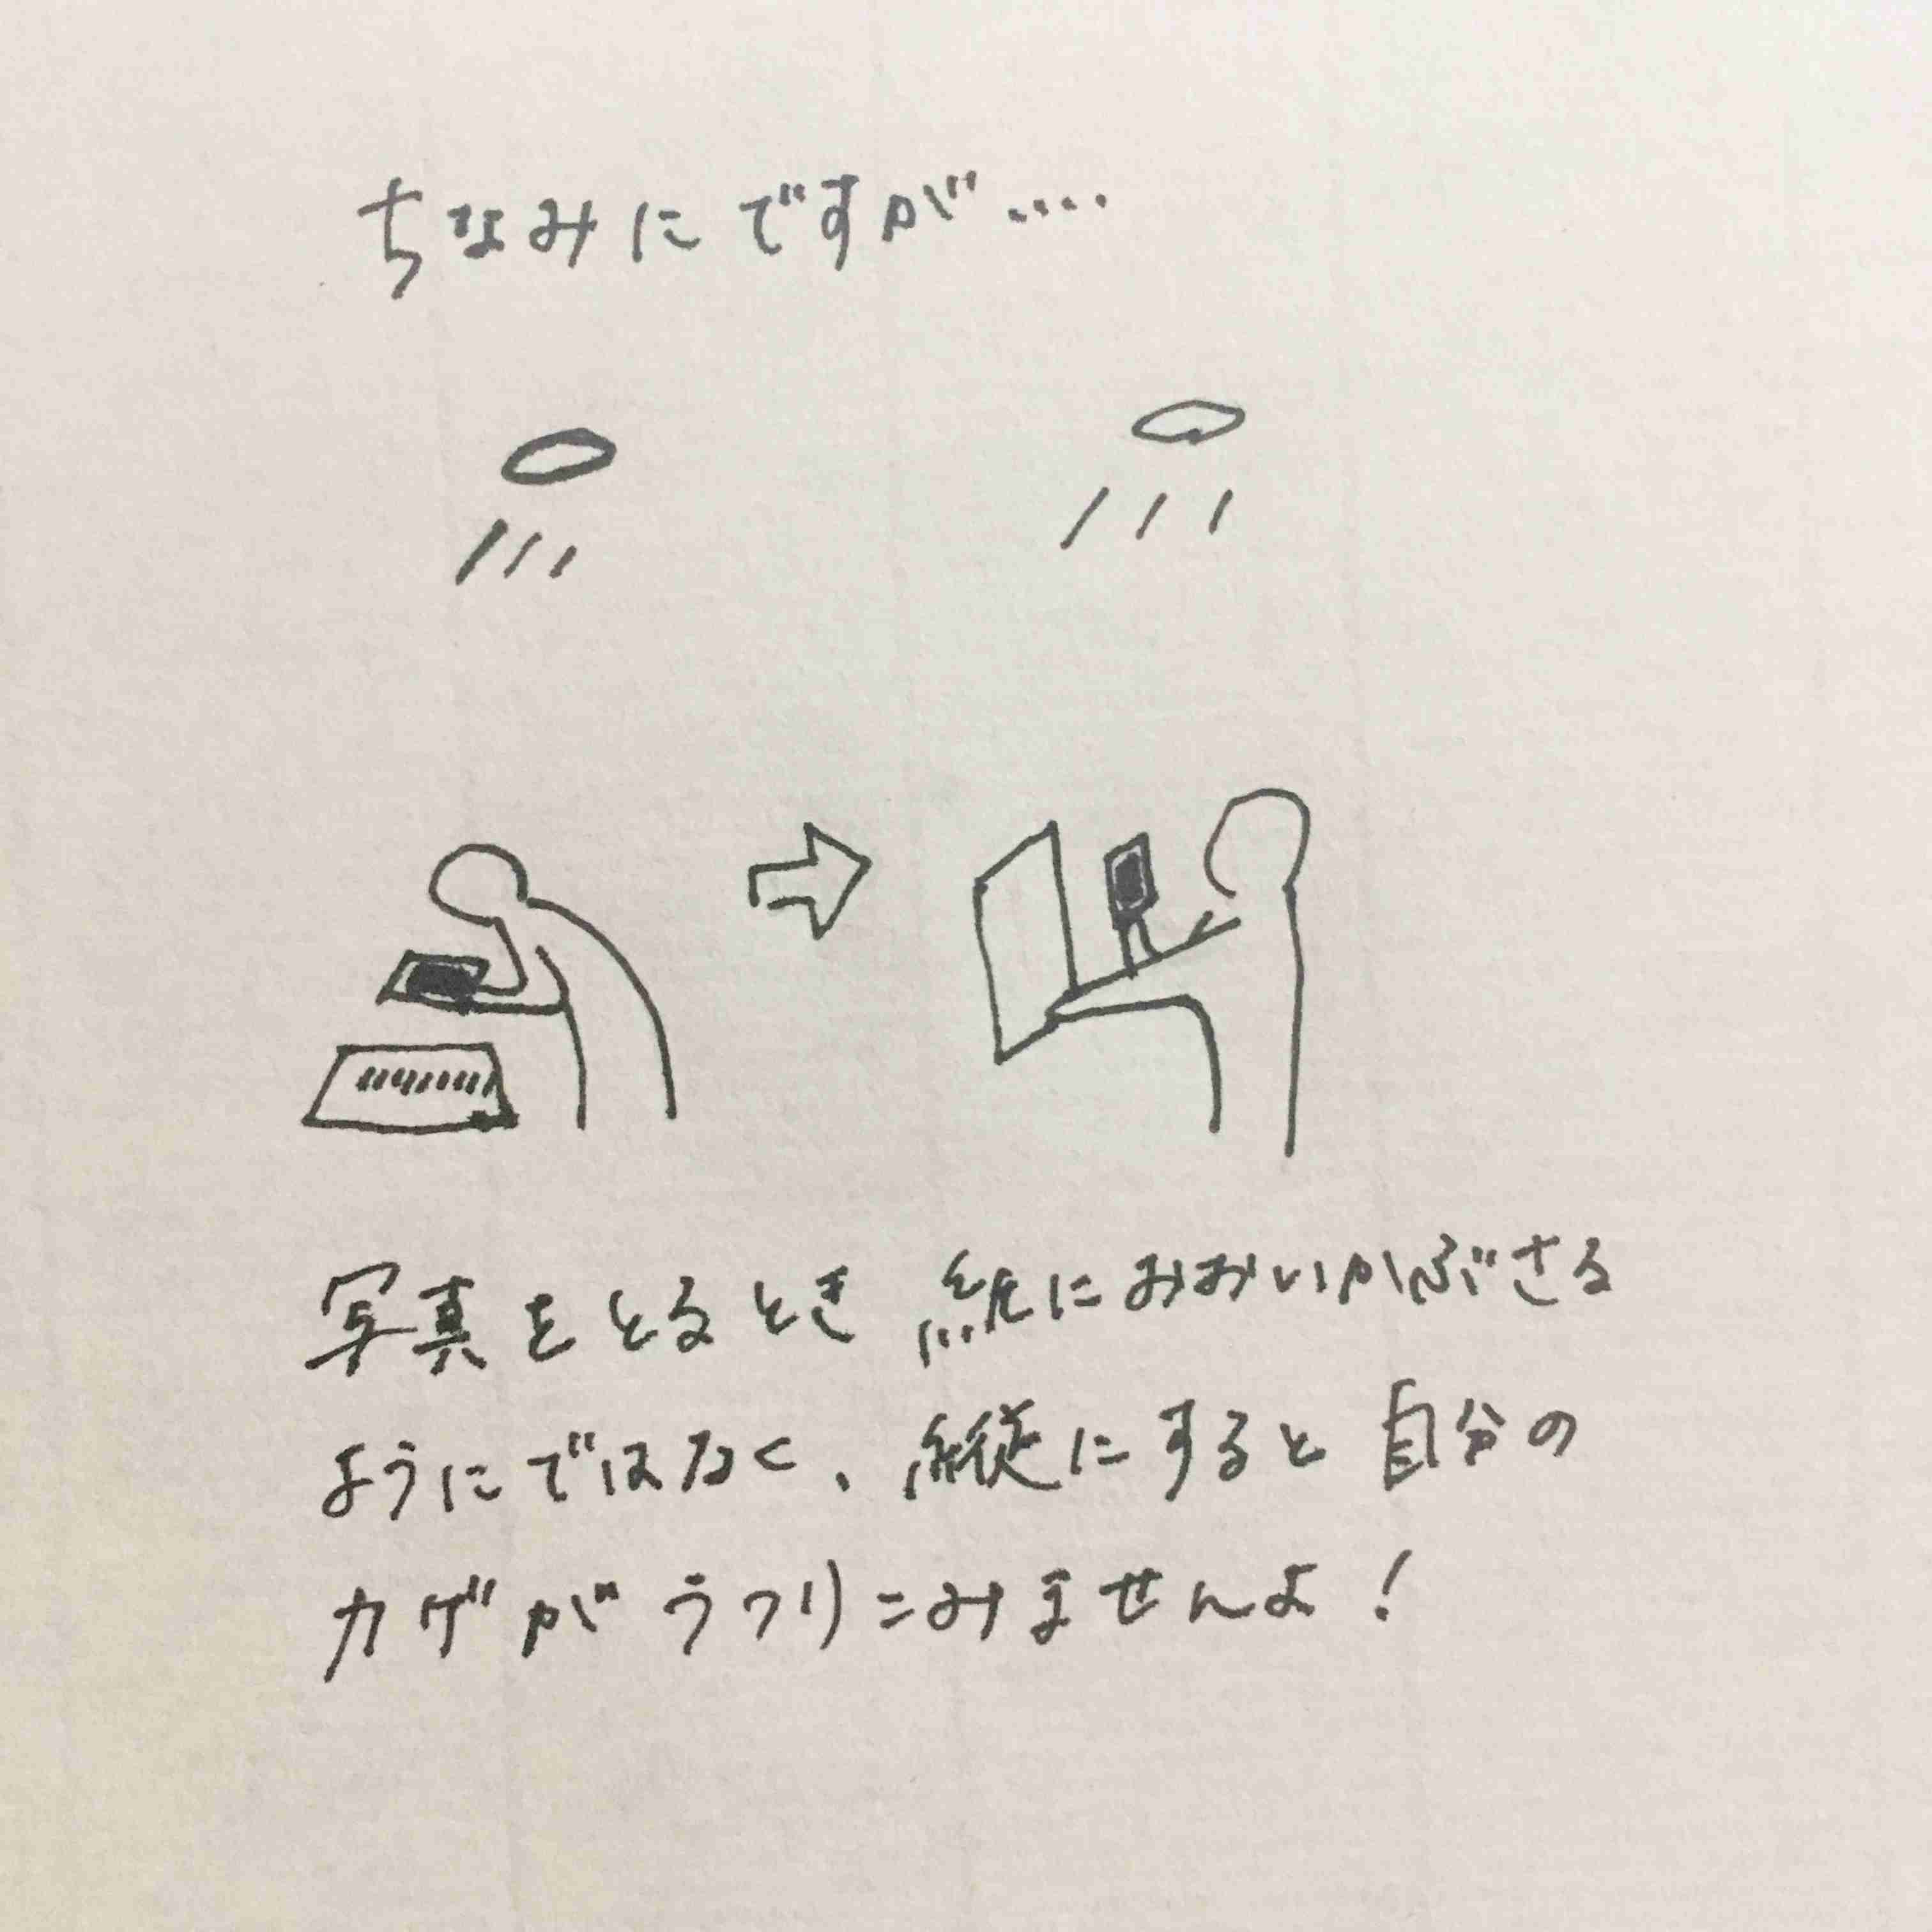 ちなみにですが....
写真をとるとき 紙におおいかぶさる
ようにではなく、縦にすると自分の
カゲがうつりこみませんよ!